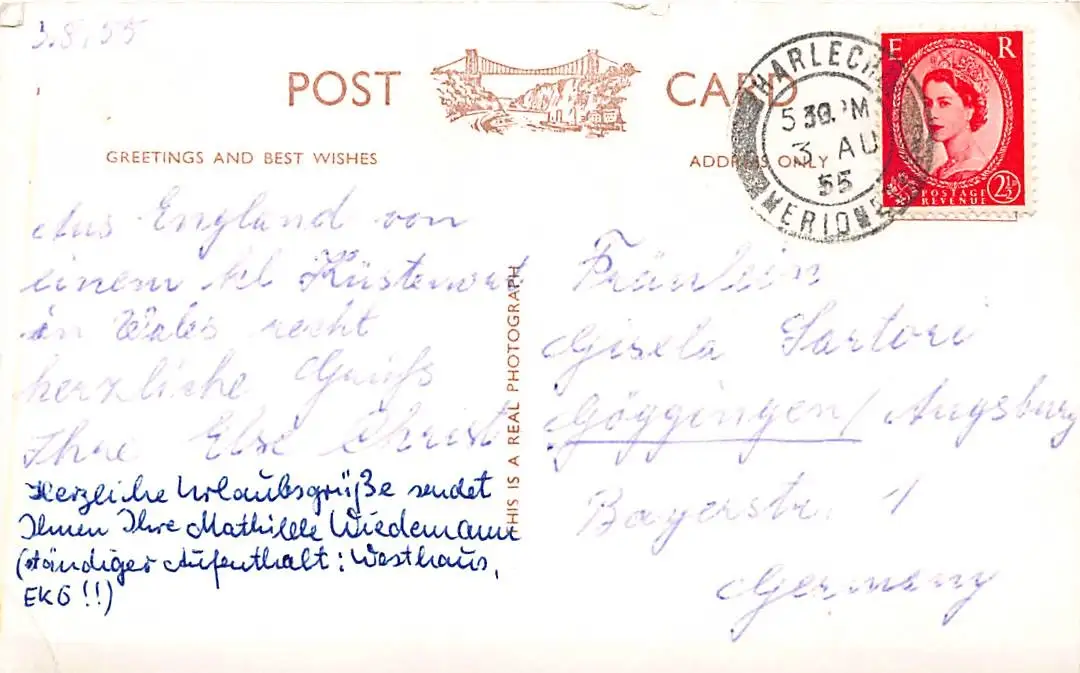 3.8.55
POST CARD
GREETINGS AND BEST WISHES
ADDRESS ONLY
HARLECH
5 30 PM
3 AU
55
MERIONETH
E R
POSTAGE
REVENUE
2½D
Aus England von
einem kl Küstenort
in Wales recht
herzliche Grüß
Ihre Else Christ
Herzliche Urlaubsgrüße sendet
Ihnen Ihre Mathilde Wiedemann
(ständiger Aufenthalt: Westhaus,
EKG!!)
THIS IS A REAL PHOTOGRAPH
Fräulein
Gisela Sartori
Göggingen / Augsburg
Bayerstr. 1
Germany